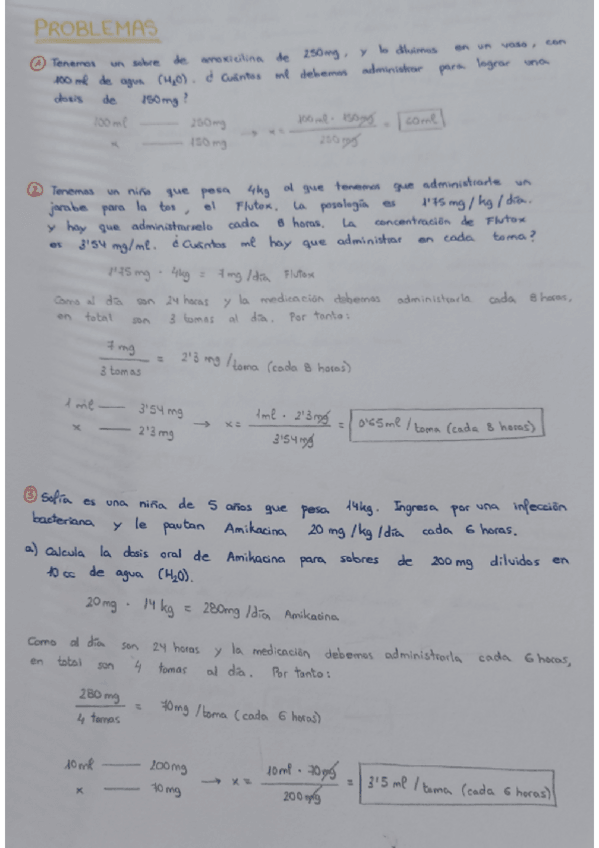 PROBLEMAS
1 Tenemos un sobre de amoxicilina de 250mg, y lo diluimos en un vaso, con
100 ml de agua (H₂O). ¿Cuántos ml debemos administrar para lograr una
dosis de 150mg?
100ml —— 250mg
x —— 150mg → x = 100ml · 150mg / 250mg = 60ml
2 Tenemos un niño que pesa 4kg al que tenemos que administrarle un
jarabe para la tos, el Flutox. La posología es 1'75 mg/kg/día.
y hay que administrárselo cada 8 horas. La concentración de Flutox
es 3'54 mg/ml. ¿Cuántos ml hay que administrar en cada toma?
1'75 mg · 4kg = 7mg/día Flutox
Como el día son 24 horas y la medicación debemos administrarla cada 8 horas,
en total son 3 tomas al día. Por tanto:
7 mg / 3 tomas = 2'3 mg/toma (cada 8 horas)
1 ml —— 3'54 mg
x —— 2'3 mg → x = 1ml · 2'3mg / 3'54mg = 0'65ml/toma (cada 8 horas)
3 Sofía es una niña de 5 años que pesa 14kg. Ingresa por una infección
bacteriana y le pautan Amikacina 20 mg/kg/día cada 6 horas.
a) Calcula la dosis oral de Amikacina para sobres de 200 mg diluidos en
10 cc de agua (H₂O).
20mg · 14 kg = 280mg/día Amikacina
Como el día son 24 horas y la medicación debemos administrarla cada 6 horas,
en total son 4 tomas al día. Por tanto:
280 mg / 4 tomas = 70mg/toma (cada 6 horas)
10ml —— 200mg
x —— 70mg → x = 10ml · 70mg / 200mg = 3'5 ml/toma (cada 6 horas)